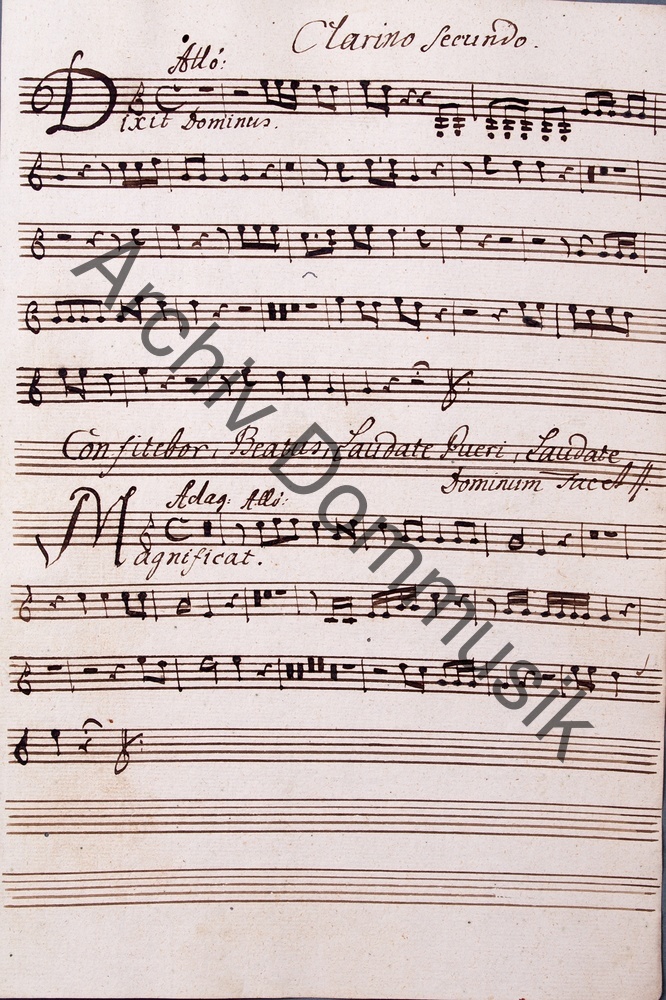 Clarino Secundo.
Allō:
Dixit Dominus.
Confitebor, Beatus, Laudate Pueri, Laudate
Dominum Tacet
Adag: Allō:
Magnificat.
Archiv Dommusik